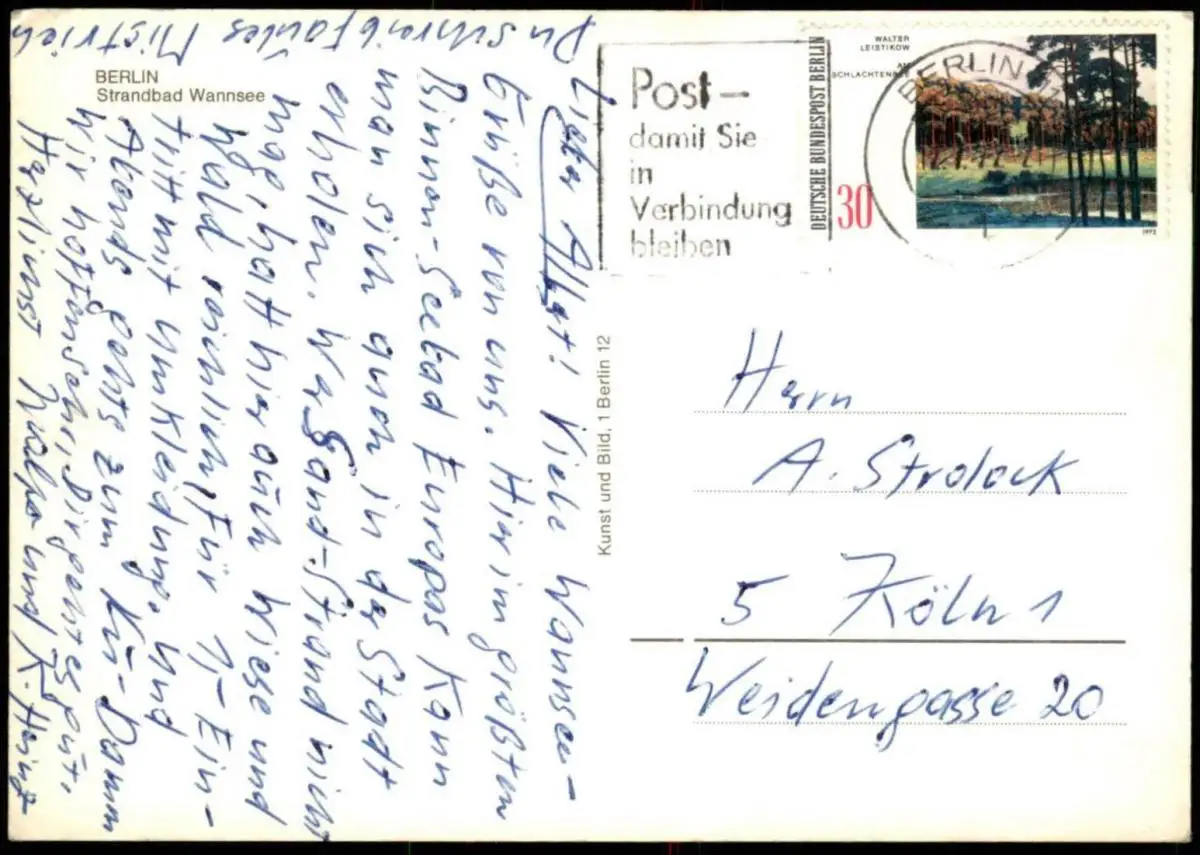 BERLIN
Strandbad Wannsee
Du schreibfaules Mistvieh
Lieber Albert! Viele Wannsee-
Grüße von uns. Hier im größten
Binnen-Seebad Europas kann
man sich auch in der Stadt
erholen. Wer Sand-Strand nicht
mag, hat hier auch Wiese und
Wald reichlich (für 1,- Ein-
tritt mit Umkleidung. Und
Abends gehts zum Kü-Damm
Wir hoffen sehr, Dir geht es gut.
Herzlinst und K. Heinz
Post –
damit Sie
in
Verbindung
bleiben
DEUTSCHE BUNDESPOST BERLIN
30
WALTER
LEISTIKOW
AM
SCHLACHTENSEE
1972
BERLIN
Kunst und Bild, 1 Berlin 12
Herrn
A. Strolock
5 Köln 1
Weidengasse 20